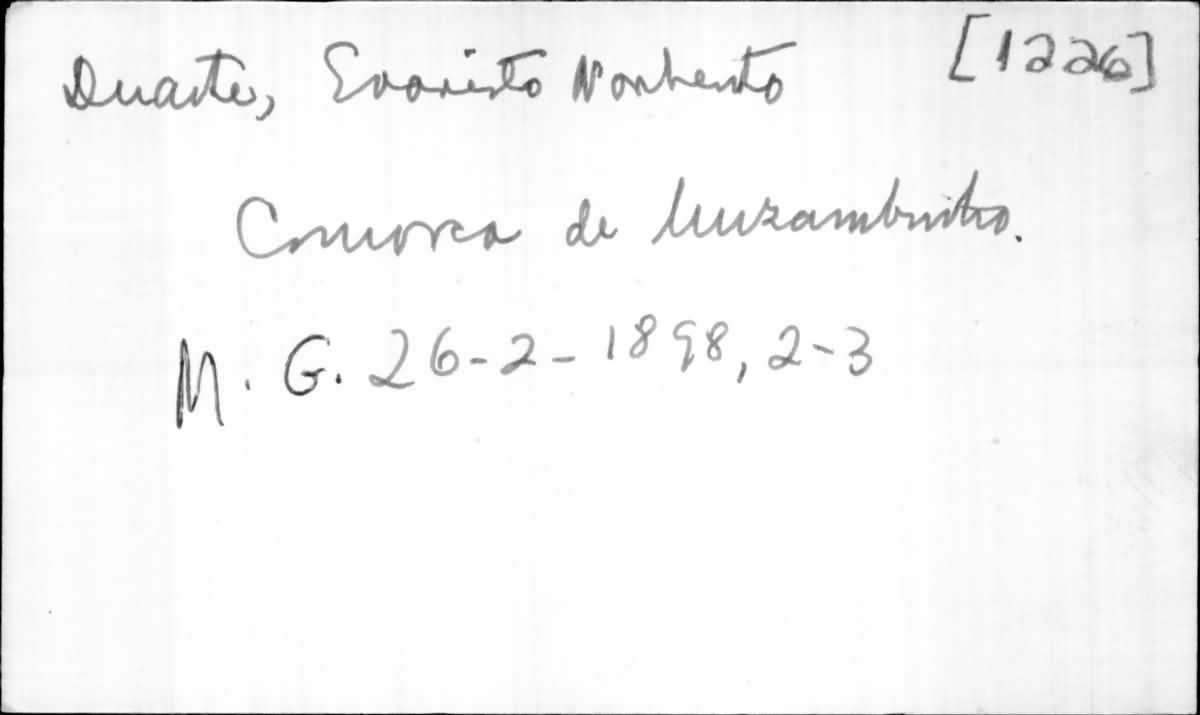 Duarte, Evaristo Norberto [1226]
Comarca de Muzambinho.
M. G. 26-2-1898, 2-3